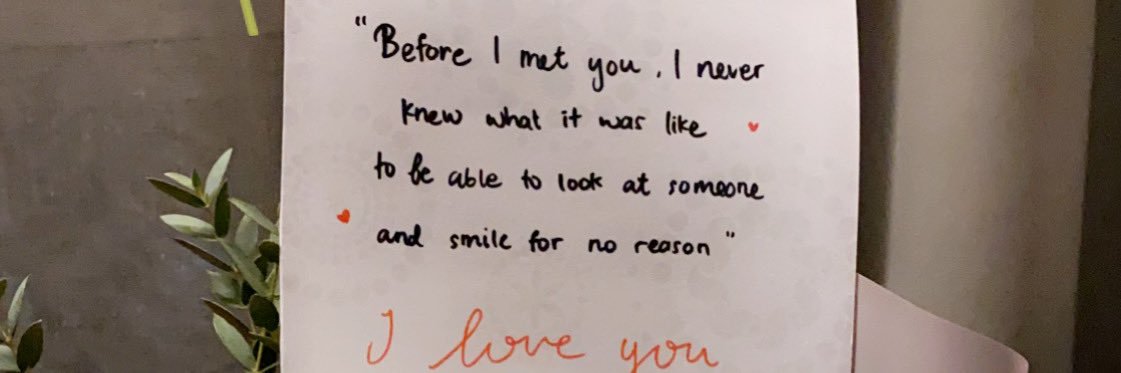 "Before I met you, I never
knew what it was like
to be able to look at someone
and smile for no reason"
I love you